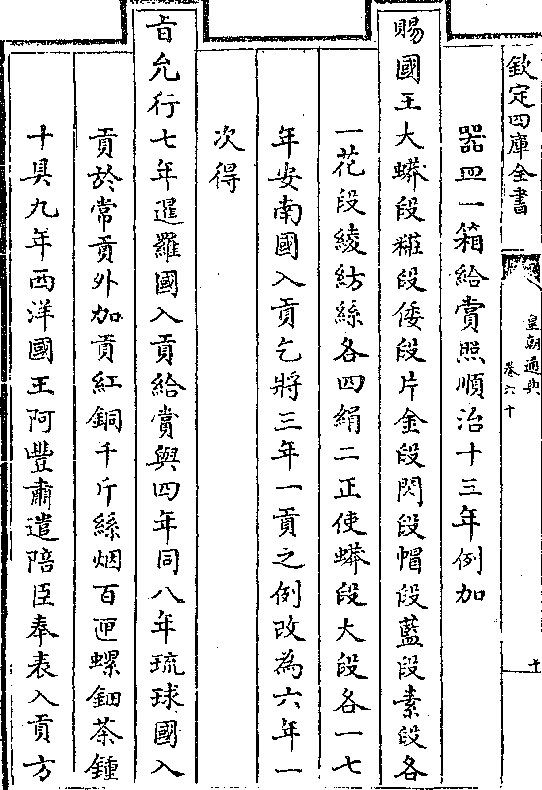 欽定四庫全書
皇朝通典
卷六十
十
器皿一箱給賞照順治十三年例加
賜國王大蟒段糚段倭段片金段閃段帽段藍段素段各
一花段綾紡絲各四絹二正使蟒段大段各一七
年安南國入貢乞將三年一貢之例改為六年一
次得
㫖允行七年暹羅國入貢給賞與四年同八年琉球國入
貢於常貢外加貢紅銅千斤絲烟百匣螺鈿茶鍾
十具九年西洋國王阿豐肅遣陪臣奉表入貢方